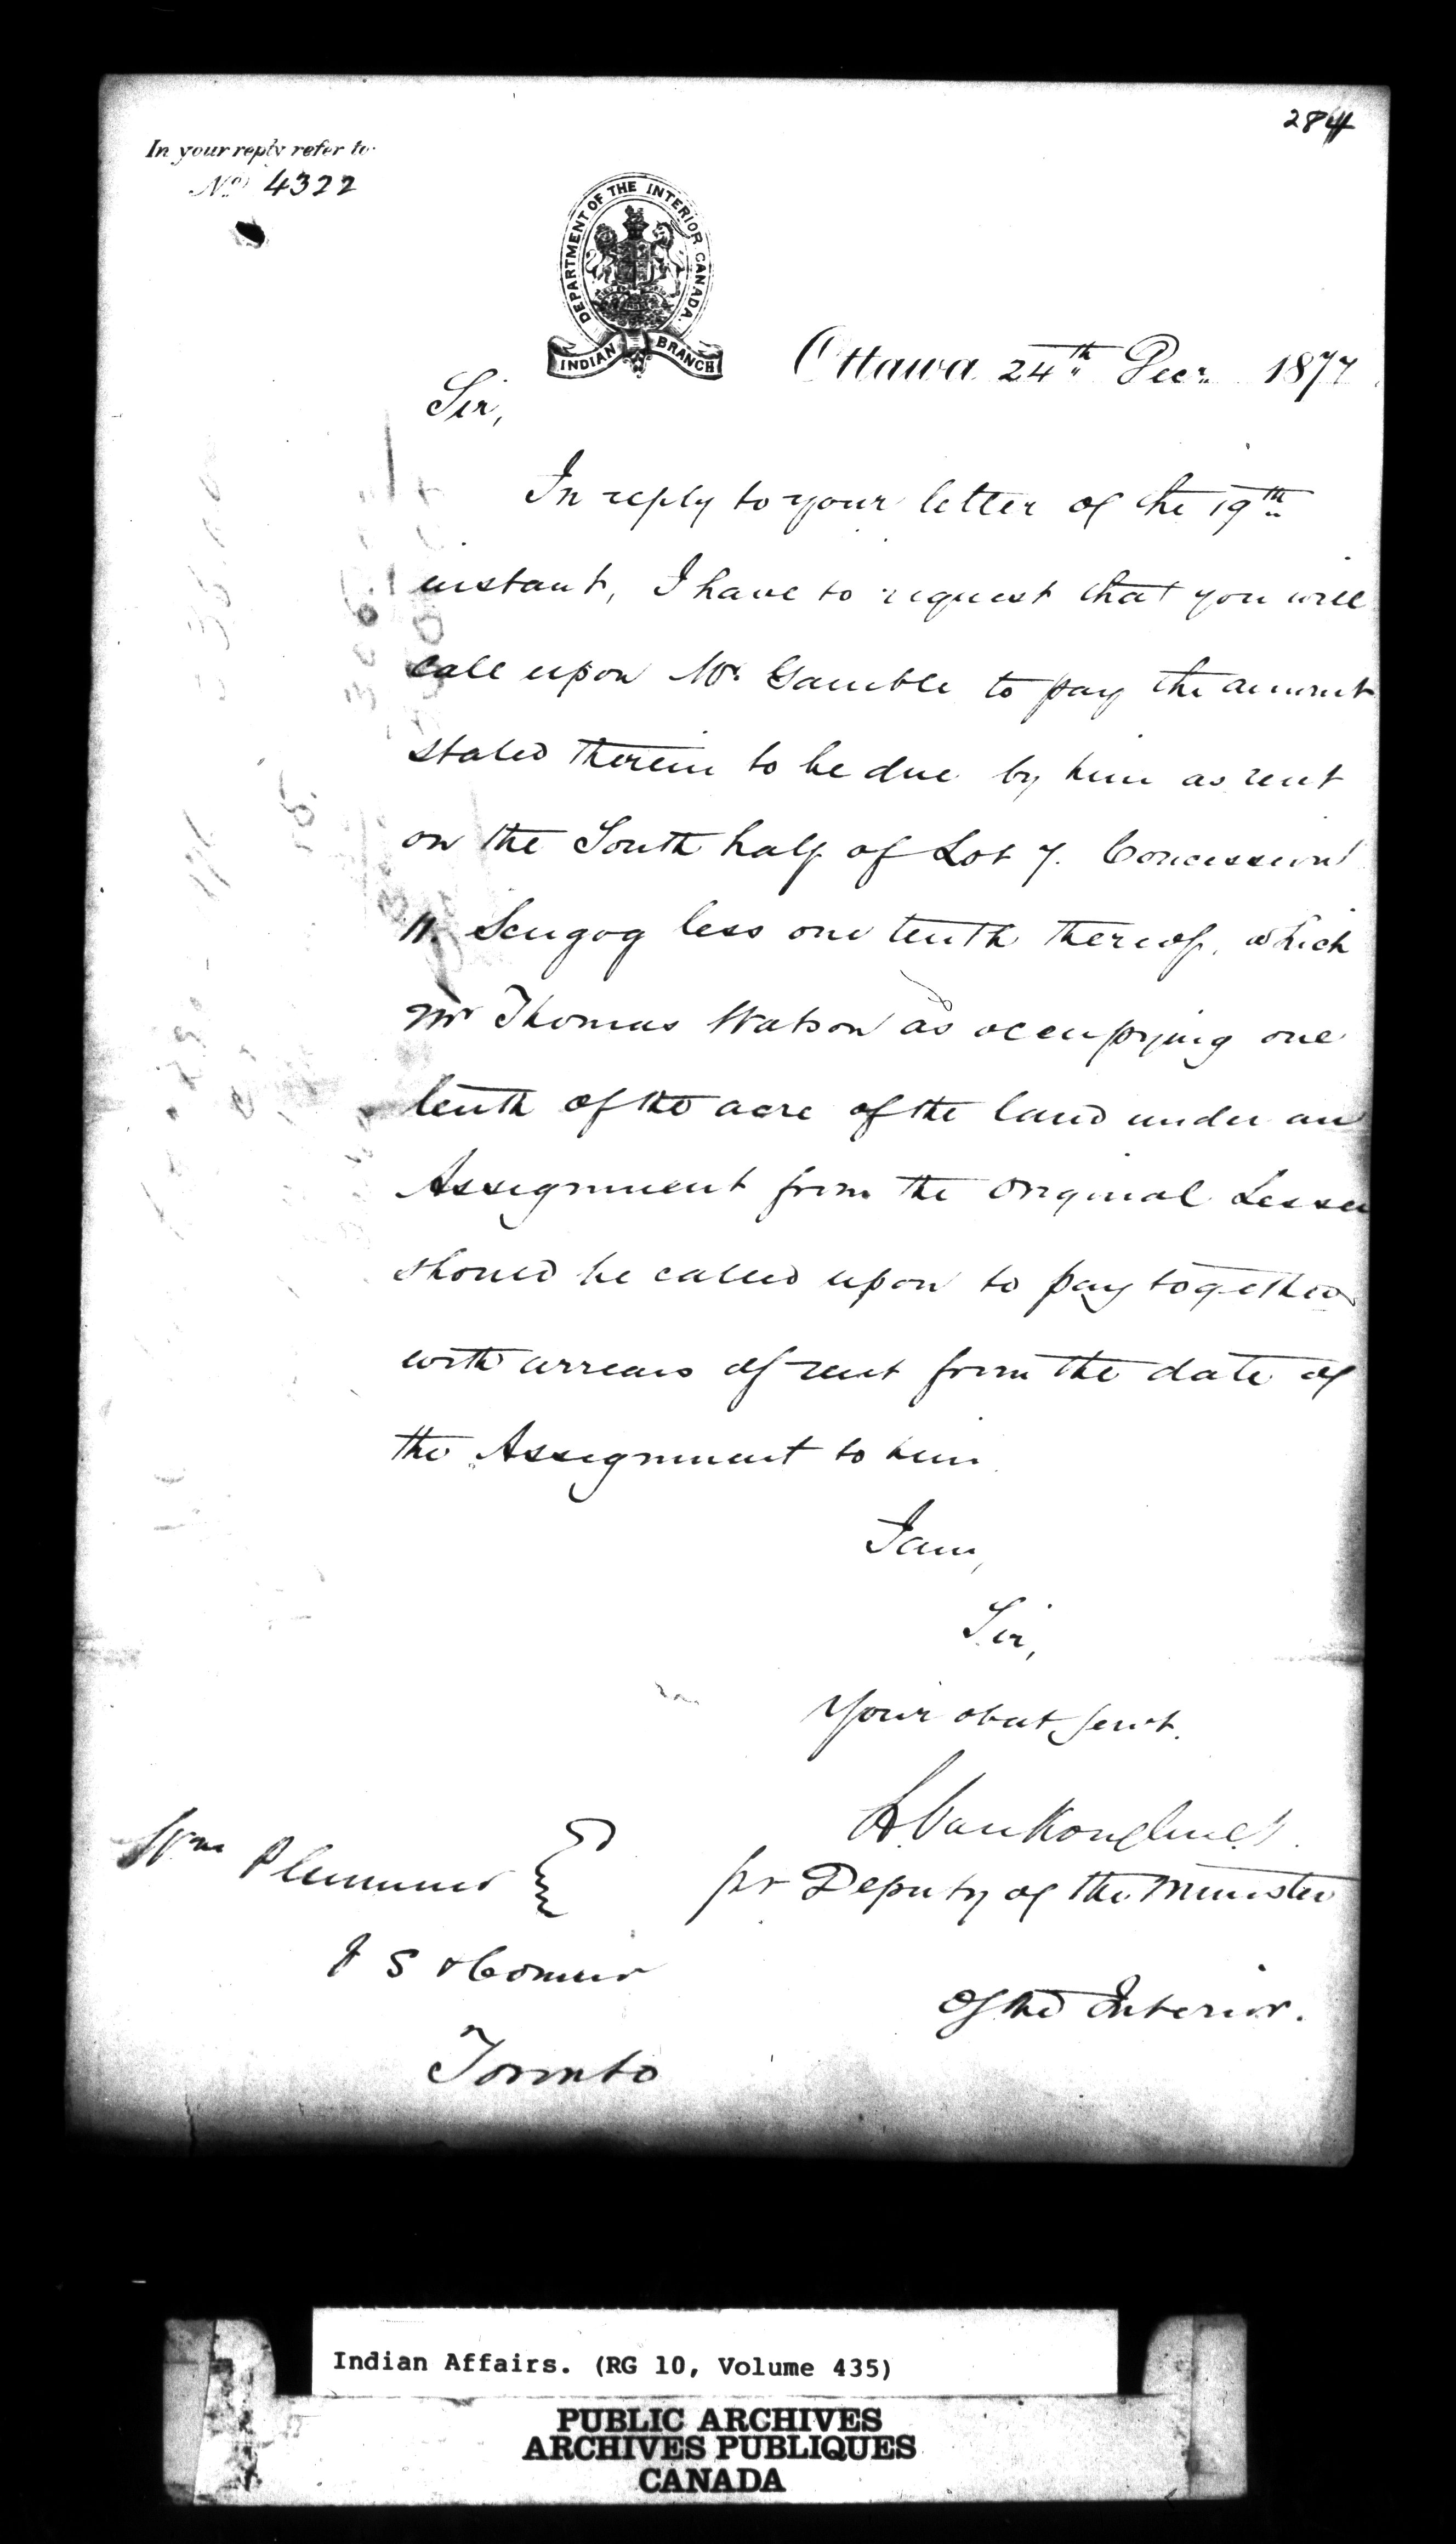 284
In your reply refer to
No 4322
DEPARTMENT OF THE INTERIOR CANADA.
INDIAN BRANCH
Ottawa 24th Decr 1877
Sir,
In reply to your letter of the 19th
instant, I have to request that you will
call upon Mr Gamble to pay the amount
stated therein to be due by him as rent
on the South half of Lot 7. Concession
11. Scugog less one tenth thereof, which
Mr Thomas Watson as occupying one
tenth of the acre of the land under an
Assignment from the original Lessee
should be called upon to pay together
with arrears of rent from the date of
the Assignment to him
I am,
Sir,
Your obedt Servt.
L. Vankoughnet
for Deputy of the Minister
of the Interior.
Wm Plummer
I S & Commr
Toronto
Indian Affairs. (RG 10, Volume 435)
PUBLIC ARCHIVES
ARCHIVES PUBLIQUES
CANADA